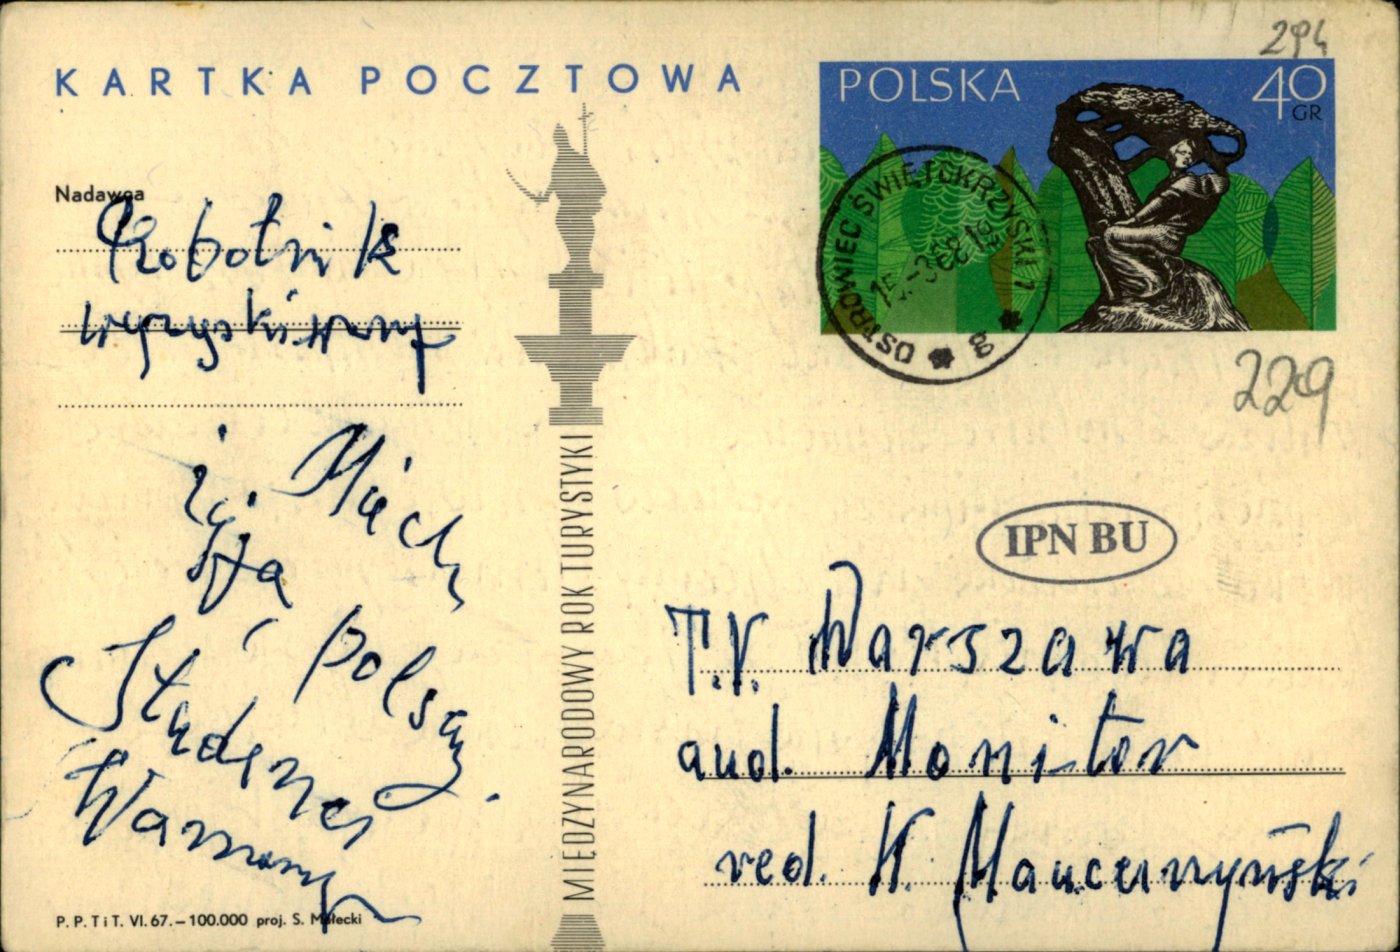 294
KARTKA POCZTOWA
POLSKA 40 GR
Nadawca
Robotnik
wyzyskiwany
OSTROWIEC ŚWIĘTOKRZYSKI 1
15.-3.68.19
g
229
Niech
żyją
polscy
Studenci
Warszawy
MIĘDZYNARODOWY ROK TURYSTYKI
IPN BU
T.V. Warszawa
aud. Monitor
red. K. Małcużyński
P. P. T i T. VI. 67. – 100.000 proj. S. Małecki